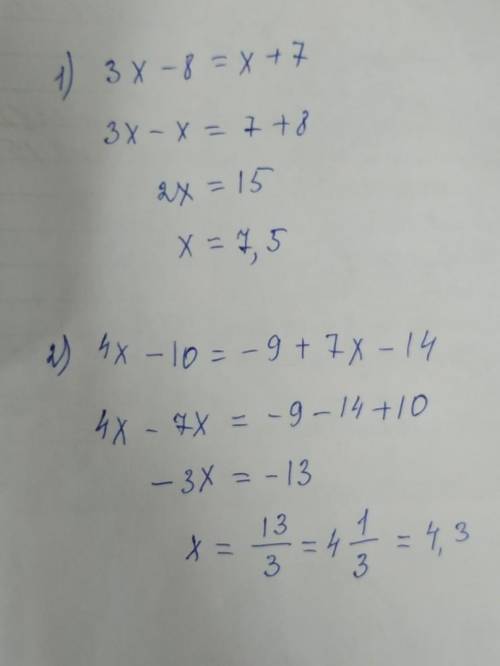 1) 3x - 8 = x + 7
3x - x = 7 + 8
2x = 15
x = 7,5
2) 4x - 10 = -9 + 7x - 14
4x - 7x = -9 - 14 + 10
-3x = -13
x = 13/3 = 4 1/3 = 4,3